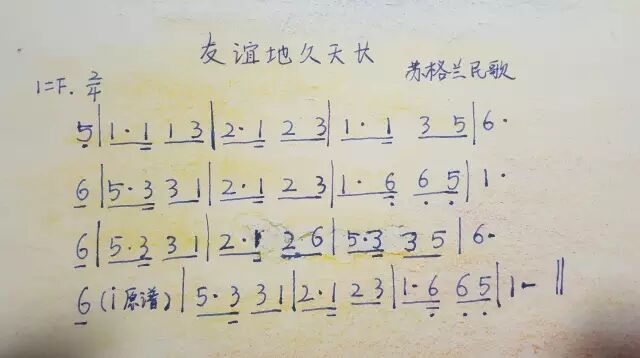 友谊地久天长
苏格兰民歌
1=F. 2/4
5|1·1 1 3|2·1 2 3|1·1 3 5|6·
6|5·3 3 1|2·1 2 3|1·6 6 5|1·
6|5·3 3 1|2·1 2·6|5·3 3 5|6·
6(i原谱)|5·3 3 1|2·1 2 3|1·6 6 5|1- ‖